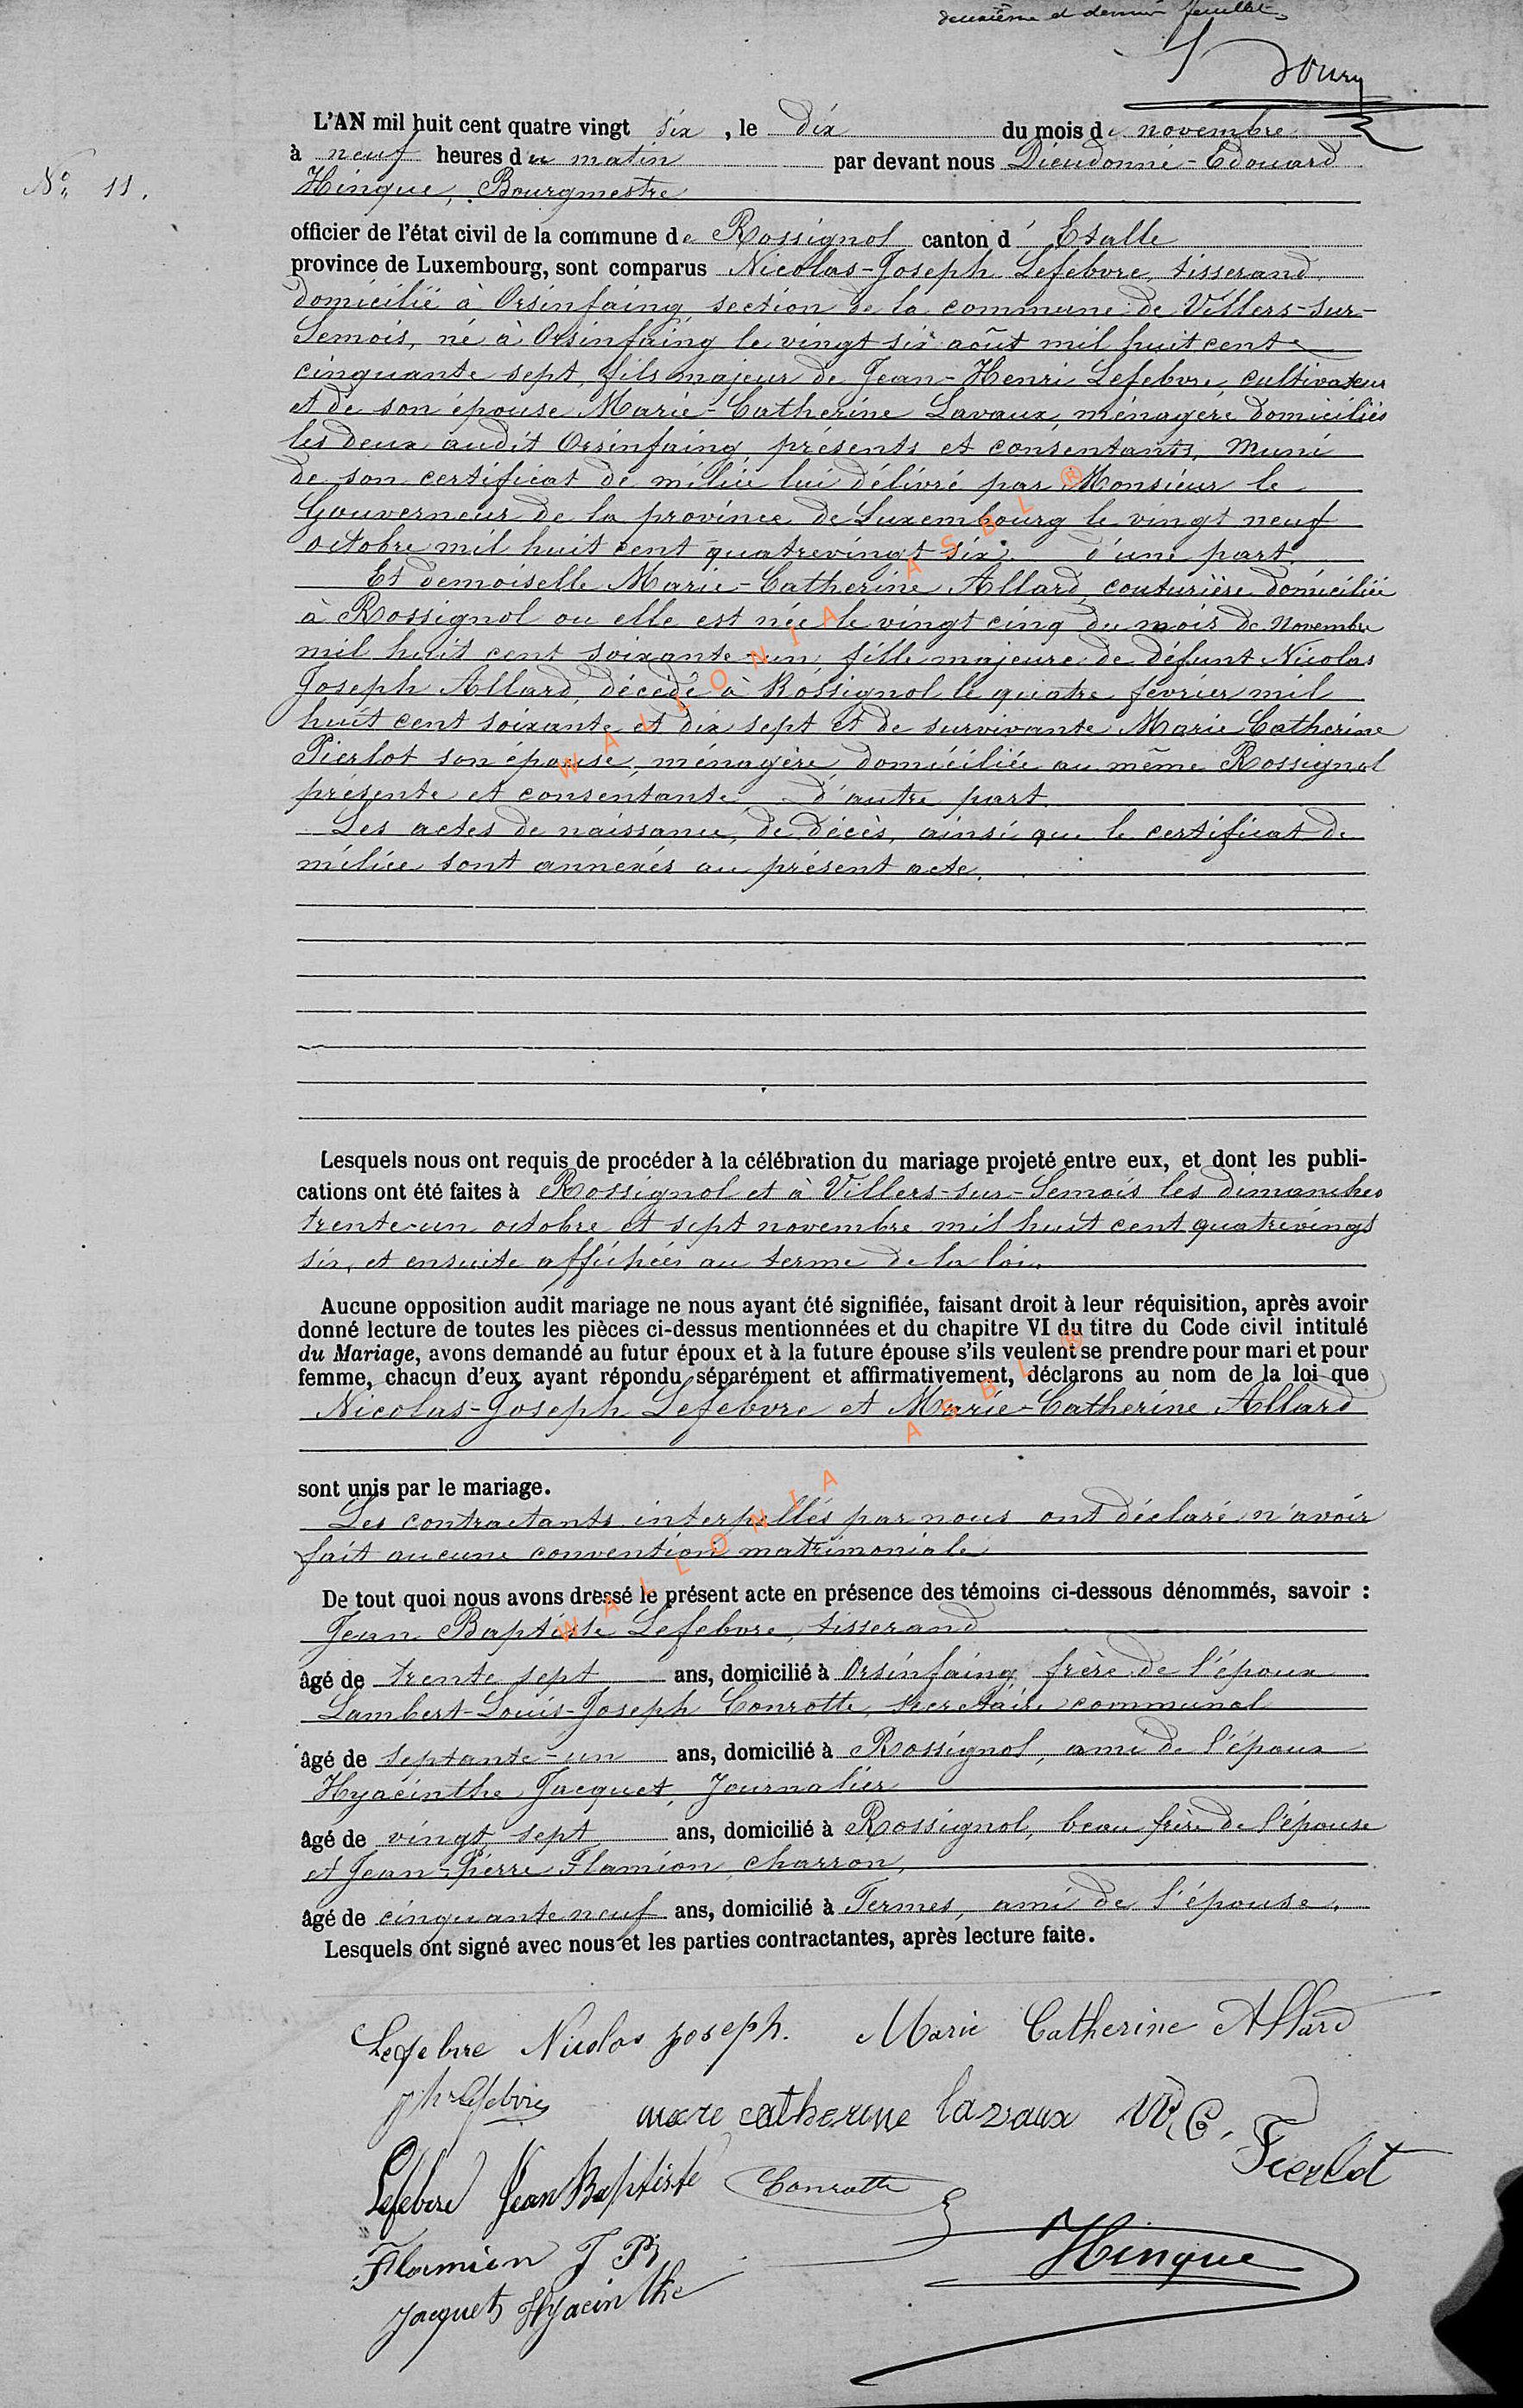 deuxième et dernier feuillet
Nº 11.
L'AN mil huit cent quatre vingt six , le dix du mois de novembre
à neuf heures du matin par devant nous Dieudonné-Edouard
Hinque, Bourgmestre
officier de l'état civil de la commune de Rossignol canton d' Etalle
province de Luxembourg, sont comparus Nicolas-Joseph Lefebvre, tisserand
domicilié à Orsinfaing section de la commune de Villers-sur-
Semois, né à Orsinfaing le vingt six août mil huit cent
cinquante sept, fils majeur de Jean-Henri Lefebvre, cultivateur
et de son épouse Marie-Catherine Lavaux, ménagère domiciliés
les deux audit Orsinfaing, présents et consentants, muni
de son certificat de milice lui délivré par Monsieur le
Gouverneur de la province de Luxembourg le vingt neuf
octobre mil huit cent quatrevingt six. d'une part.
Et demoiselle Marie-Catherine Allard, couturière domiciliée
à Rossignol ou elle est née le vingt cinq du mois de novembre
mil huit cent soixante-un, fille majeure de défunt Nicolas
Joseph Allard, décédé à Rossignol le quatre février mil
huit cent soixante et dix sept et de survivante Marie Catherine
Pierlot son épouse, ménagère domiciliée au même Rossignol
présente et consentante d'autre part.
Les actes de naissance, de décès, ainsi que le certificat de
milice sont annexés au présent acte.
Lesquels nous ont requis de procéder à la célébration du mariage projeté entre eux, et dont les publi-
cations ont été faites à Rossignol et à Villers-sur-Semois les dimanches
trente-un octobre et sept novembre mil huit cent quatrevingt
six, et ensuite affichées au terme de la loi.
Aucune opposition audit mariage ne nous ayant été signifiée, faisant droit à leur réquisition, après avoir
donné lecture de toutes les pièces ci-dessus mentionnées et du chapitre VI du titre du Code civil intitulé
du Mariage, avons demandé au futur époux et à la future épouse s'ils veulent se prendre pour mari et pour
femme, chacun d'eux ayant répondu séparément et affirmativement, déclarons au nom de la loi que
Nicolas-Joseph Lefebvre et Marie-Catherine Allard
sont unis par le mariage.
Les contractants interpellés par nous ont déclaré n'avoir
fait aucune convention matrimoniale
De tout quoi nous avons dressé le présent acte en présence des témoins ci-dessous dénommés, savoir :
Jean Baptiste Lefebvre, tisserand
âgé de trente sept ans, domicilié à Orsinfaing, frère de l'époux
Lambert-Louis-Joseph Conrotte, secrétaire communal
âgé de septante-un ans, domicilié à Rossignol, ami de l'époux
Hyacinthe Jacquet, Journalier
âgé de vingt sept ans, domicilié à Rossignol, beau frère de l'épouse
et Jean-Pierre Flamion, charron,
âgé de cinquante neuf ans, domicilié à Termes, ami de l'épouse.
Lesquels ont signé avec nous et les parties contractantes, après lecture faite.
Lefebvre Nicolas joseph. Marie Catherine Allard
jh Lefebvre marie catherine lavaux M, C, Pierlot
Lefebvre Jean Baptiste Conrotte
Flamion J P Hinque
Jacquet Hyacinthe
WALLONIA ASBL ®
WALLONIA ASBL ®